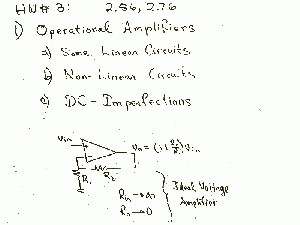 HW# 3: 2.56, 2.76
1) Operational Amplifiers
a) Some Linear Circuits
b) Non-Linear Circuits
c) DC-Imperfections
Vin
Vo = (1+R2/R1)Vin
R2
R1
Rin → ∞
Ro → 0
Ideal Voltage
Amplifier